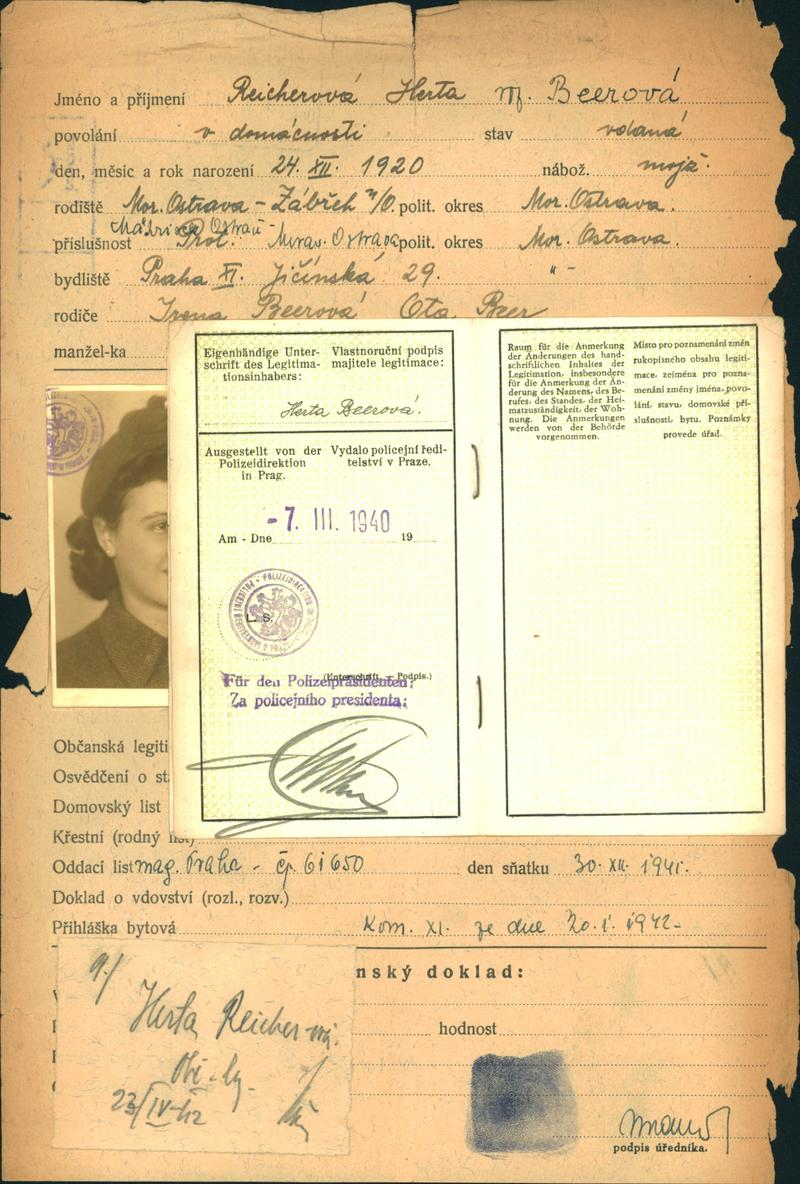 Jméno a příjmení Reicherová Herta Beerová
povolání v domácnosti stav vdaná
den, měsíc a rok narození 24. XII. 1920 nábož. mojž.
rodiště Mor. Ostrava - Zábřeh n/O polit. okres Mor. Ostrava.
příslušnost Prot. Morav. Ostrava polit. okres Mor. Ostrava.
bydliště Praha XI. Jičínská 29. " -
rodiče Irena Beerová Ota Beer
manžel-ka
Eigenhändige Unter- Vlastnoruční podpis
schrift des Legitima- majitele legitimace:
tionsinhabers:
Herta Beerová.
Ausgestellt von der Vydalo policejní ředi-
Polizeidirektion telství v Praze.
in Prag.
- 7. III. 1940
Am - Dne 19
L. S.
(Unterschrift. - Podpis.)
Für den Polizeipräsidenten:
Za policejního presidenta:
Raum für die Anmerkung
der Änderungen des hand-
schriftlichen Inhaltes der
Legitimation, insbesondere
für die Anmerkung der Än-
derung des Namens, des Be-
rufes, des Standes, der Hei-
matzuständigkeit, der Woh-
nung. Die Anmerkungen
werden von der Behörde
vorgenommen.
Místo pro poznamenání změn
rukopisného obsahu legiti-
mace, zejména pro pozna-
menání změny jména, povo-
lání, stavu, domovské pří-
slušnosti, bytu. Poznámky
provede úřad.
Občanská legiti
Osvědčení o st
Domovský list
Křestní (rodný list)
Oddací list mag. Praha - čp. 61650 den sňatku 30. XII. 1941.
Doklad o vdovství (rozl., rozv.)
Přihláška bytová Kom. XI. ze dne 20. I. 1942 -
nský doklad:
hodnost
9./
Herta Reicher
23/IV-42
podpis úředníka.